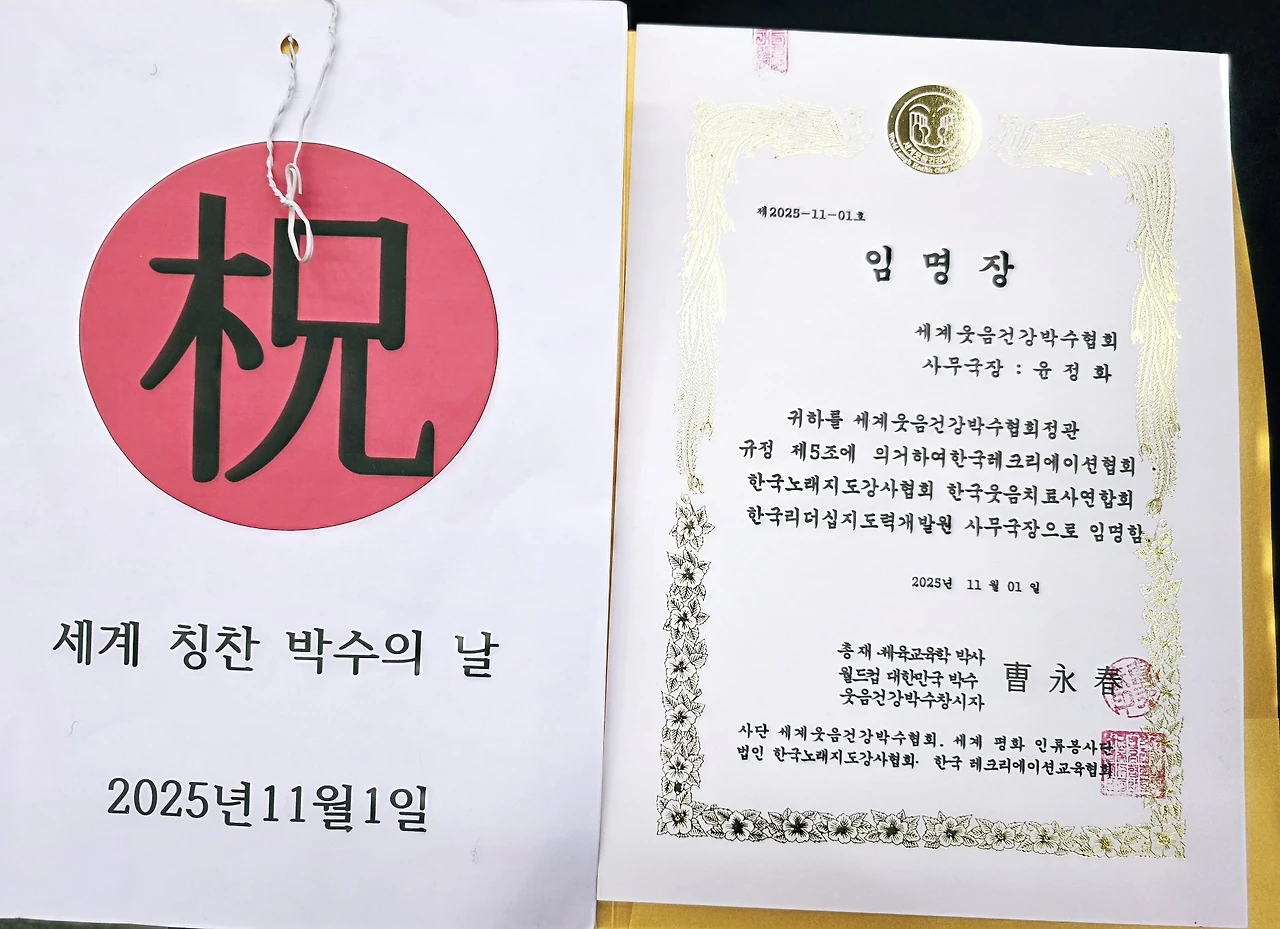 祝
세계 칭찬 박수의 날
2025년11월1일
제2025-11-01호
임 명 장
세계웃음건강박수협회
사무국장 : 윤 정 화
귀하를 세계웃음건강박수협회정관
규정 제5조에 의거하여한국레크리에이션협회
한국노래지도강사협회 한국웃음치료사연합회
한국리더십지도력개발원 사무국장으로 임명함.
2025년 11 월 01 일
총 재 체육교육학 박사
월드컵 대한민국 박수
웃음건강박수창시자
曺 永 春
사단 세계웃음건강박수협회. 세계 평화 인류봉사단
법인 한국노래지도강사협회· 한국 레크리에이션교육협회